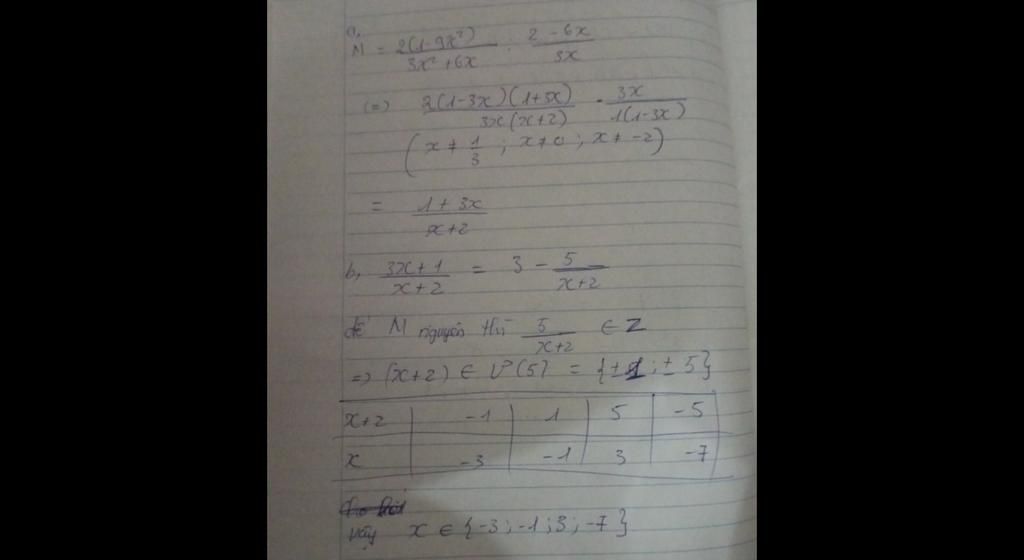 a,
N = 2(1-9x²)/3x²+6x : 2-6x/3x
(=) 2(1-3x)(1+3x)/3x(x+2) . 3x/1(1-3x)
(x ≠ 1/3 ; x ≠ 0 ; x ≠ -2)
= 1+3x/x+2
b, 3x+1/x+2 = 3 - 5/x+2
để N nguyên thì 5/x+2 ∈ Z
=> (x+2) ∈ Ư(5) = {±1 ; ± 5}
x+2 -1 1 5 -5
x -3 -1 3 -7
vậy x ∈ {-3 ; -1 ; 3 ; -7}